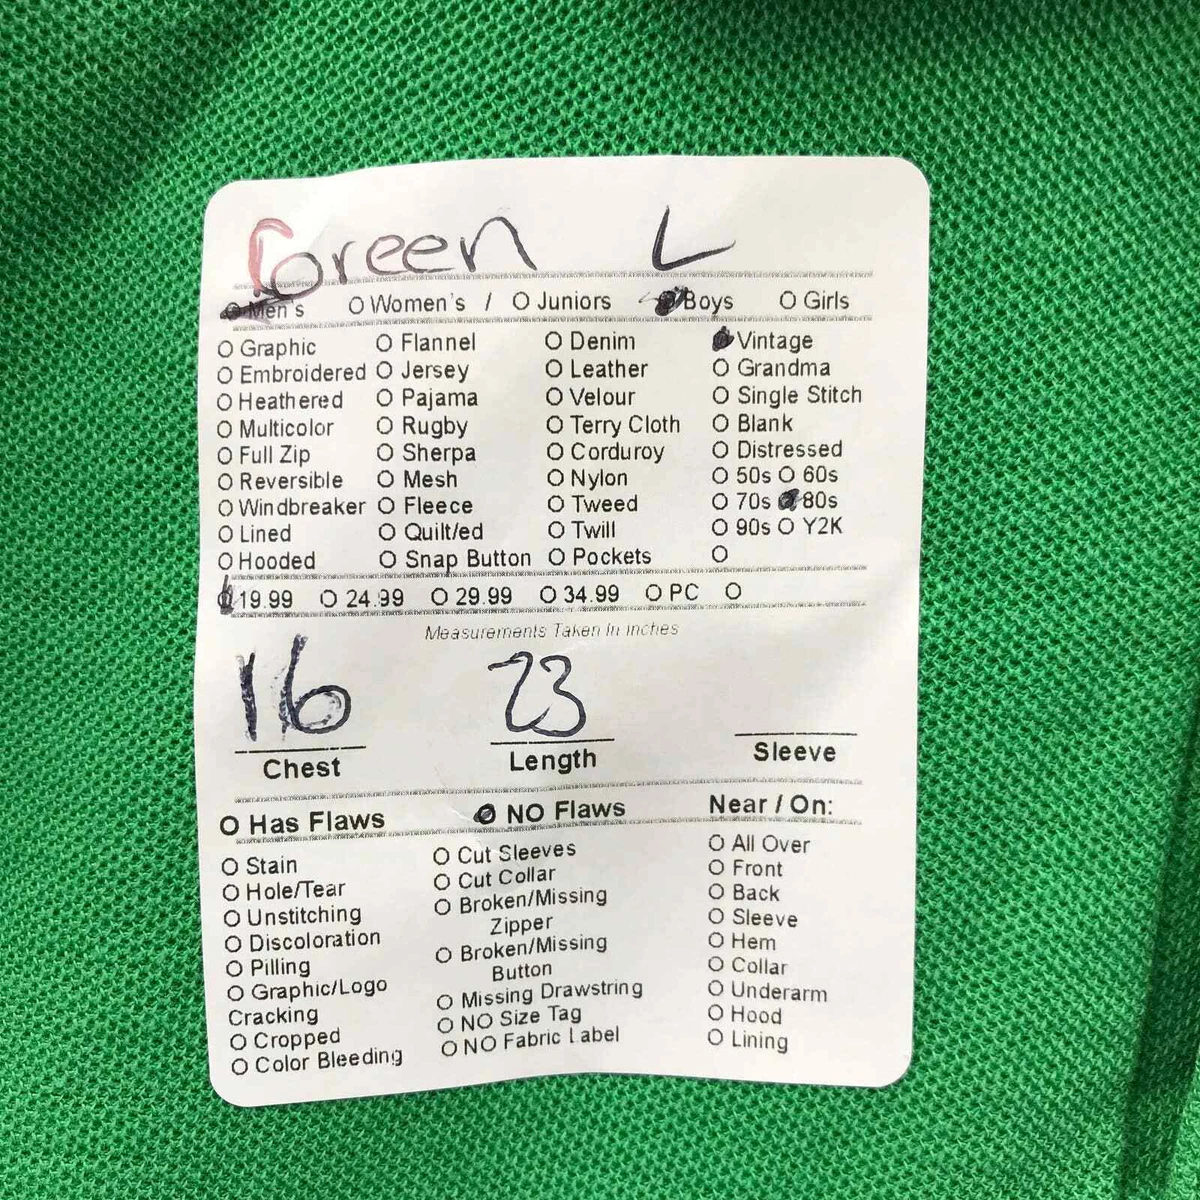 Green L
Men's Women's / Juniors Boys Girls
Graphic Flannel Denim Vintage
Embroidered Jersey Leather Grandma
Heathered Pajama Velour Single Stitch
Multicolor Rugby Terry Cloth Blank
Full Zip Sherpa Corduroy Distressed
Reversible Mesh Nylon 50s 60s
Windbreaker Fleece Tweed 70s 80s
Lined Quilt/ed Twill 90s Y2K
Hooded Snap Button Pockets
19.99 24.99 29.99 34.99 PC
Measurements Taken In inches
16 23
Chest Length Sleeve
Has Flaws NO Flaws Near / On:
Stain Cut Sleeves All Over
Hole/Tear Cut Collar Front
Unstitching Broken/Missing Back
Zipper Sleeve
Discoloration Broken/Missing Hem
Pilling Button Collar
Graphic/Logo Missing Drawstring Underarm
Cracking NO Size Tag Hood
Cropped NO Fabric Label Lining
Color Bleeding